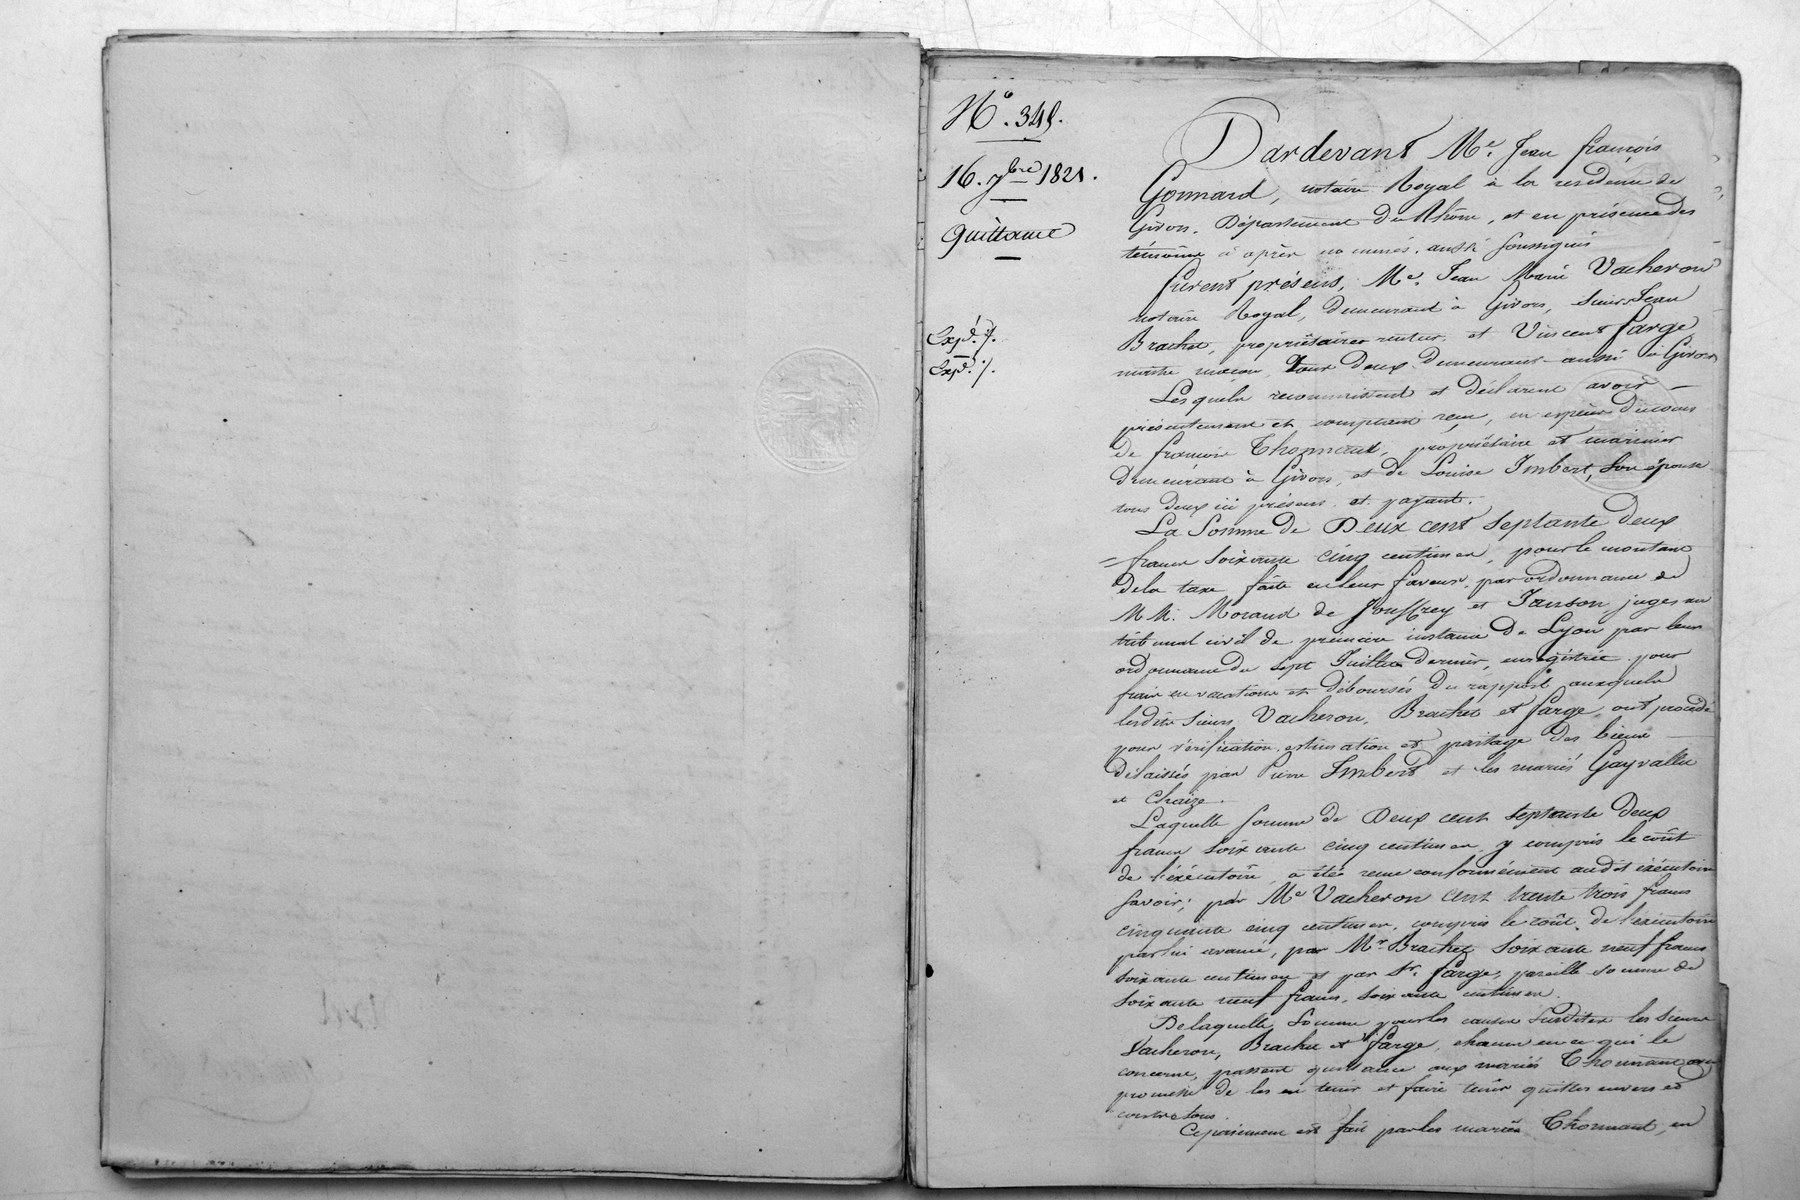 N.° 345.
16. 7bre 1821.
Quittance
Exp.d. /.
Exp.d. /.
Pardevant Me. Jean françois
Gonnard, notaire Royal à la résidence de
Givors, Département du Rhône, et en présence des
témoins ci après nommés, aussi soussignés
furent présens, Me. Jean Marie Vacheron
notaire Royal, demeurant à Givors, sieurs Jean
Brachet, propriétaire rentier, et Vincent farge
maitre maçon, tous deux demeurant aussi à Givors
Lesquels reconnaissent et déclarent avoir
présentement et comptant reçu, en espèces du cours
de françois Thonnant, propriétaire et marinier
demeurant à Givors, et de Louise Imbert, son épouse
tous deux ici présens et payant.
La Somme de Deux cent septante deux
francs soixante cinq centimes, pour le montant
de la taxe faite en leur faveur, par ordonnance de
MM. Morand de Jouffrey et Janson, juges au
tribunal civil de première instance de Lyon par leur
ordonnance du sept Juillet dernier, enregistrée pour
frais en vacations et déboursés du rapport auxquels
lesdits sieurs Vacheron, Brachet et farge, ont procédé
pour vérification, estimation et partage des biens
délaissés par Pierre Imbert et les mariés Gayvallet
et Chaize.
Laquelle somme de Deux cent septante deux
francs soixante cinq centimes, y compris le coût
de l'éxécutoire, a étée reçue conformément audit éxécutoire
savoir; par Me Vacheron cent trente trois francs
cinquante cinq centimes, compris le coût de l'exécutoire
par lui avancé, par Mr. Brachet soixante neuf francs
soixante centimes et par Sr. farge, pareille somme de
soixante neuf francs, soixante centimes.
De laquelle somme pour les causes susdites les sieurs
Vacheron, Brachet et farge, chacun en ce qui le
concerne, passent quittance aux mariés Thonnant avec
promesse de les en tenir et faire tenir quittes envers et
contre tous.
Ce paiement est fait par les mariés Thonnant, en